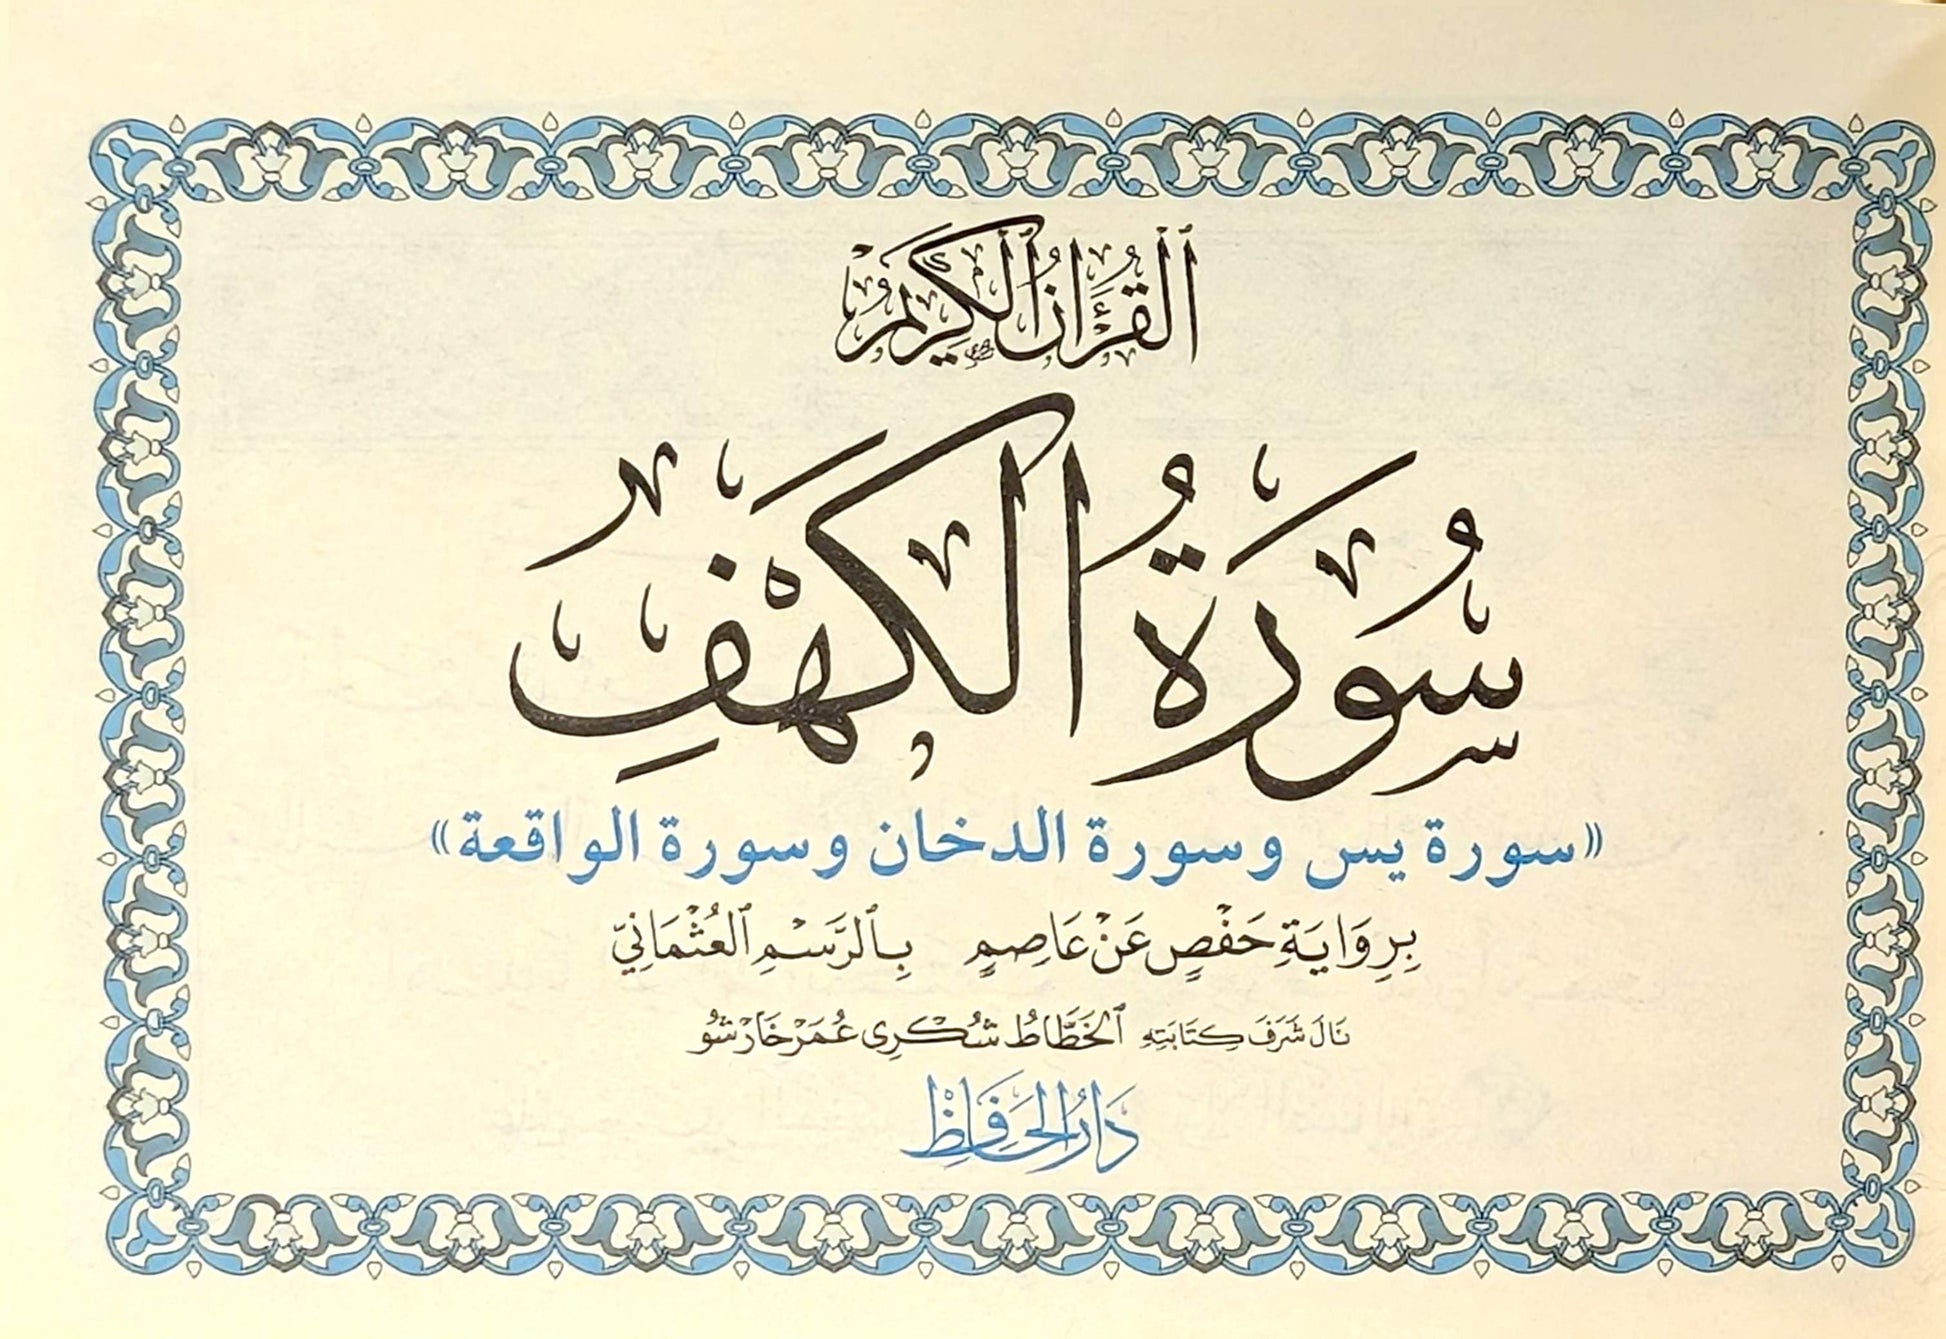 ٱلْقُرْءَانُ ٱلْكَرِيمُ
سُورَةُ الْكَهْفِ
«سورة يس وسورة الدخان وسورة الواقعة»
بِرِوَايَةِ حَفْصٍ عَنْ عَاصِمٍ بِٱلرَّسْمِ ٱلْعُثْمَانِيِّ
نَالَ شَرَفَ كِتَابَتِهِ ٱلْخَطَّاطُ شُكْرِي عُمَرْ خَارْشُو
دَارُ الْحَافِظِ